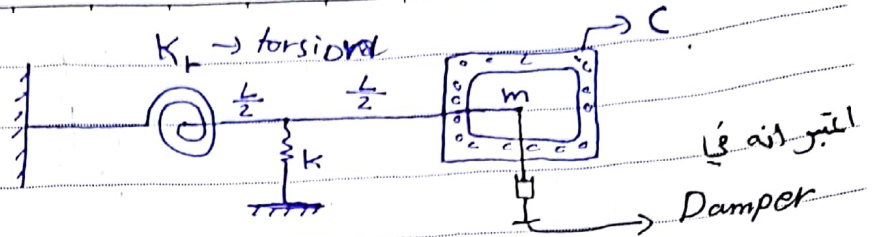 K_r → torsional
C
L/2
L/2
m
اعتبر انه في
k
Damper